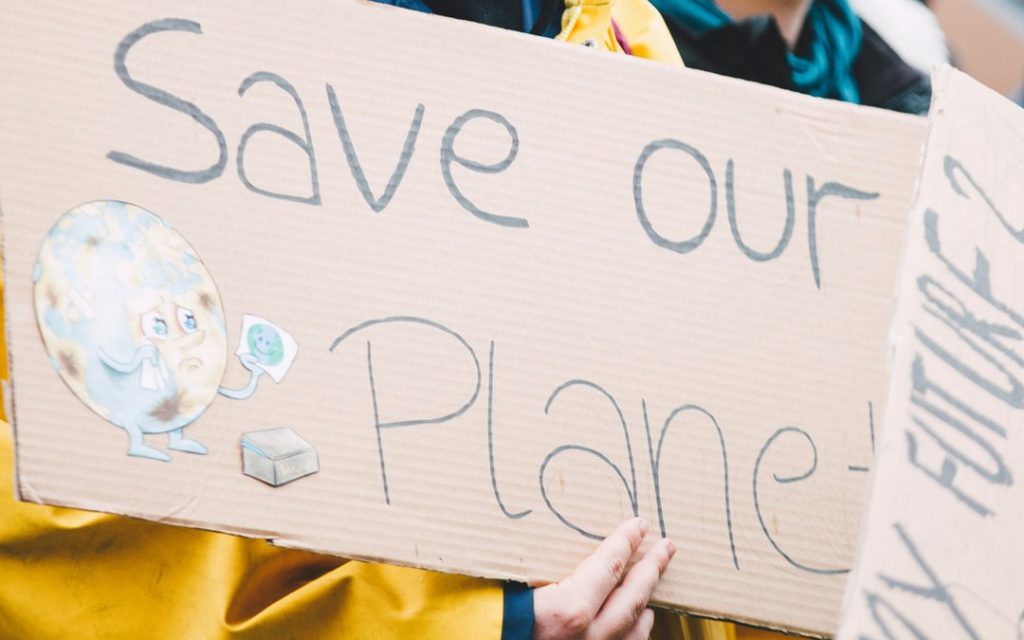 Save our
Planet
FUTURE?